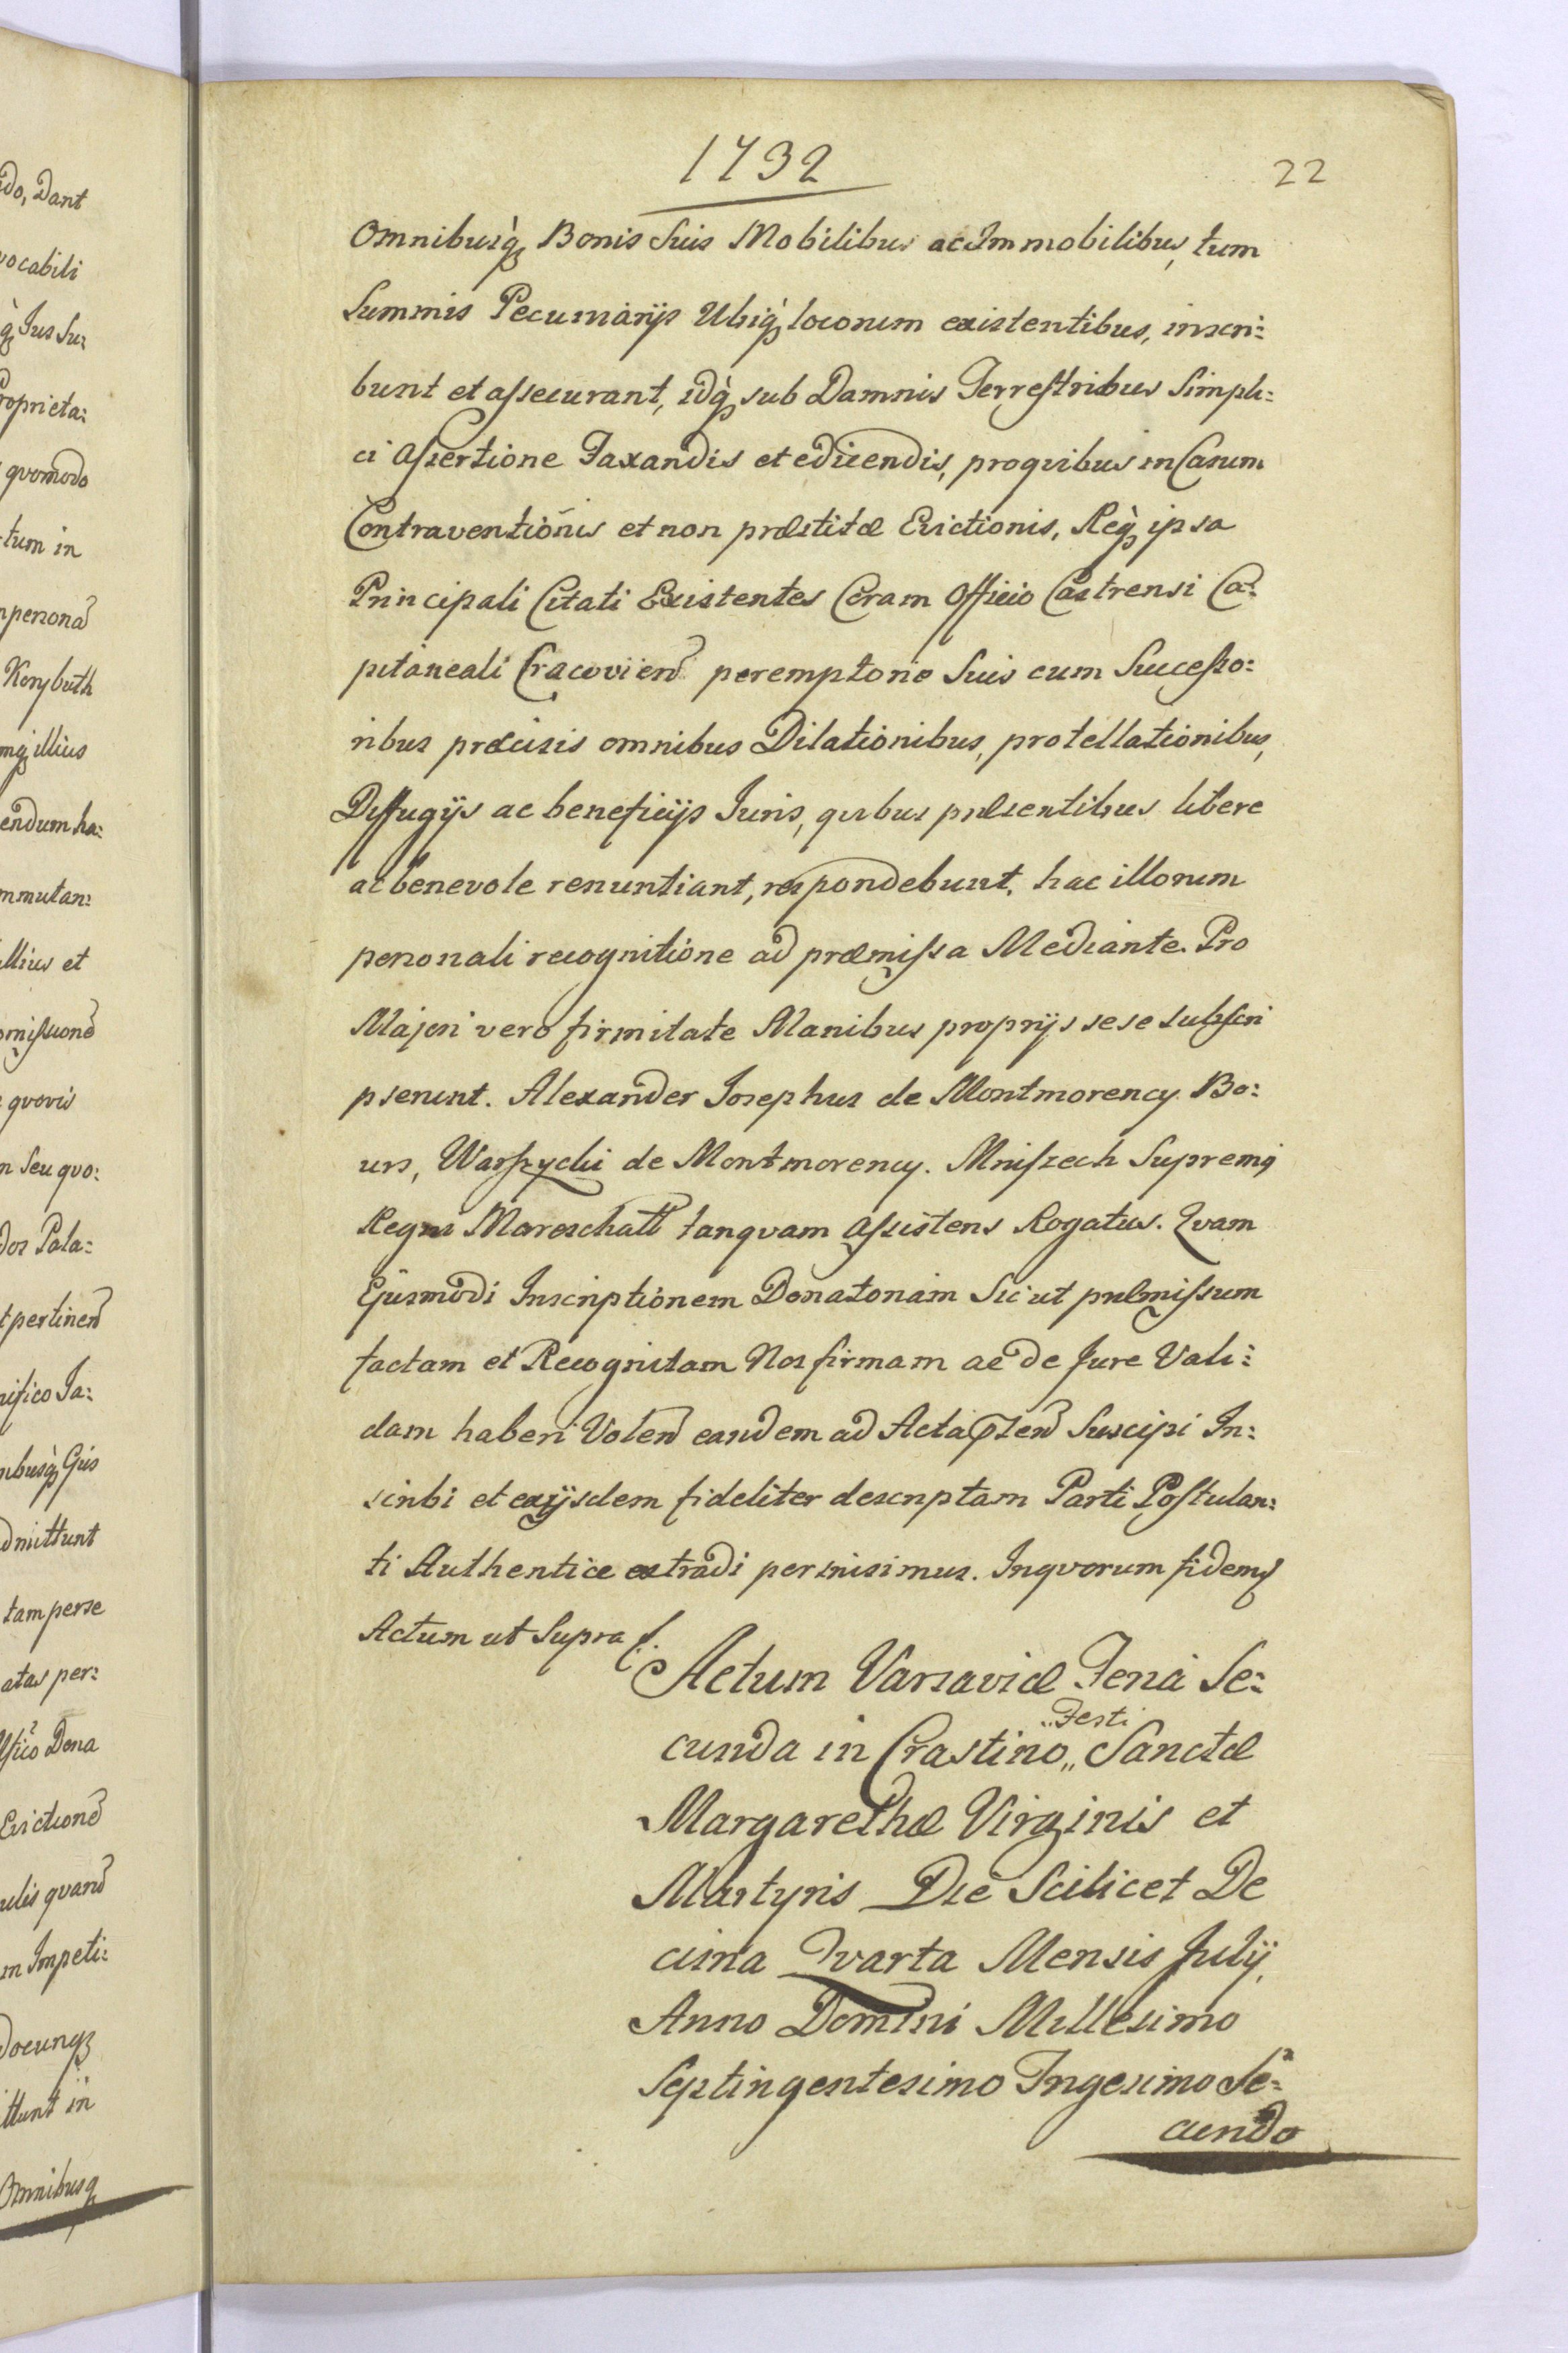 do, Dant
vocabili
q Jus Su:
Proprieta:
quomodo
tum in
npersona
Korybuth
mq illius
endum ha:
mmutan:
llius et
omissione
quovis
n Seu quo:
dos Pala:
t pertinen
nifico Ja:
nibusq Ejus
dmittunt
tam perse
atas per:
Dona
Evictione
ulis quam
m Impeti:
docunq
ittunt in
Omnibusq
1732
22
Omnibusq Bonis Suis Mobilibus ac Immobilibus, tum
Summis Pecuniarijs Ubiq locorum existentibus, inscri:
bunt et assecurant, idq sub Damnis Terrestribus Simpli:
ci Assertione Taxandis et edicendis, pro quibus in Casum
Contraventionis et non præstitæ Evictionis, Req ipsa
Principali Citati Existentes Coram Officio Castrensi Ca:
pitaneali Cracovien peremptorie Suis cum Successo:
ribus præcisis omnibus Dilationibus, protellationibus,
Diffugijs ac beneficijs Juris, quibus præsentibus libere
ac benevole renuntiant, respondebunt, hac illorum
personali recognitione ad præmissa Mediante. Pro
Majori vero firmitate Manibus proprijs sese subscri
pserunt. Alexander Josephus de Montmorency Bo:
urs, Warszycki de Montmorency. Mniszech Supremq
Regni Mareschall tanquam Assistens Rogatus. Quam
Ejusmodi Inscriptionem Donatoriam Sicut præmissum
factam et Recognitam Nos firmam ac de Jure Vali:
dam haberi Volen eandem ad Acta pnten Suscipi In:
scribi et ex ijsdem fideliter descriptam Parti Postulan:
ti Authentice extradi permisimus. In quorum fidem
Actum ut Supra
Actum Varsaviæ Feria Se:
cunda in Crastino „ Festi „ Sanctæ
Margarethæ Virginis et
Martyris Die Scilicet De
cima Quarta Mensis Julij,
Anno Domini Millesimo
Septingentesimo Trigesimo Se:
cundo